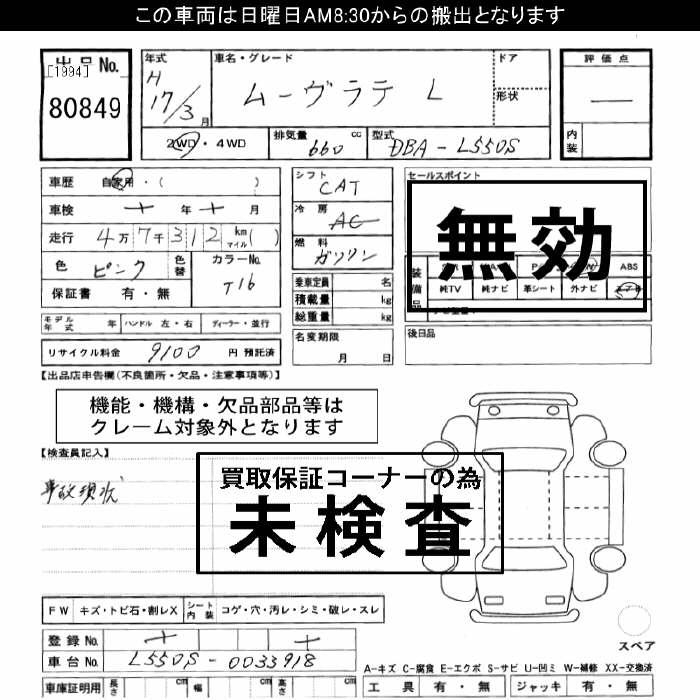 この車両は日曜日AM8:30からの搬出となります
出品 No.
[1994]
80849
年式 車名・グレード ドア
H
17/3 月
ムーヴラテ L
形状
評価点
—
内装
2WD・4WD 排気量 660 cc 型式 DBA-L550S
車歴 自家用・( )
車検 年 月
走行 4万7千312 km マイル( )
色 ピンク 色替 カラーNo. T16
保証書 有・無
シフト CAT
冷房 AC
燃料 ガソリン
乗車定員 名
積載量 kg
総重量 kg
セールスポイント
無効
装備品
ABS
純TV 純ナビ 革シート 外ナビ
モデル年式 年 ハンドル 左・右 ディーラー・並行
名変期限
月 日
後日品
リサイクル料金 9100 円 預託済
【出品店申告欄(不良箇所・欠品・注意事項等)】
機能・機構・欠品部品等は
クレーム対象外となります
【検査員記入】
事故現状
買取保証コーナーの為
未検査
FW キズ・トビ石・割レX シート内装 コゲ・穴・汚レ・シミ・破レ・スレ
登録 No.
車台 No. L550S-0033918
車庫証明用 長さ cm 幅 cm 高さ cm
スペア
A-キズ C-腐食 E-エクボ S-サビ U-凹ミ W-補修 XX-交換済
工具 有・無 ジャッキ 有・無